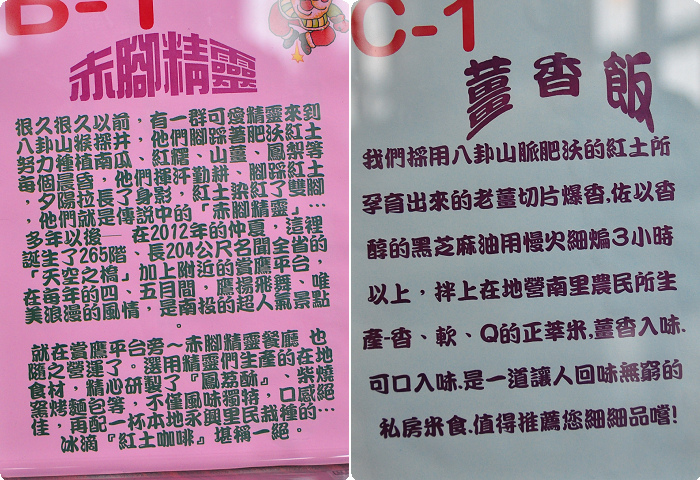 B-1
赤腳精靈
很久很久以前,有一群可愛精靈來到
八卦山猴探井,他們腳踩著肥沃紅土
努力種植南瓜、紅糯、山薑、鳳梨等
每個晨昏,他們揮汗勤耕、腳踩紅土
,夕陽拉長了身影,紅土染紅了雙腳
,他們就是傳說中的「赤腳精靈…
多年以後— 在2012年的仲夏,這裡
誕生了265階、長204公尺名間全省的
「天空之橋」加上附近的賞鷹平台,
在每年的四、五月間,鷹揚飛舞、唯
美浪漫的風情,是南投的超人氣景點
。
就在賞鷹平台旁~赤腳精靈餐廳 也
隨之營運了。選用精靈們生產的在地
食材,精心研製了『鳳荔酥』、柴燒
窯烤麵包等,不僅風味獨特,口感絕
佳,再配一杯本地永興里民栽種的…
冰滴『紅土咖啡』堪稱一絕。
C-1
薑香飯
我們採用八卦山脈肥沃的紅土所
孕育出來的老薑切片爆香.佐以香
醇的黑芝麻油用慢火細煸3小時
以上,拌上在地營南里農民所生
產-香、軟、Q的正莘米,薑香入味.
可口入味.是一道讓人回味無窮的
私房米食.值得推薦您細細品嚐!